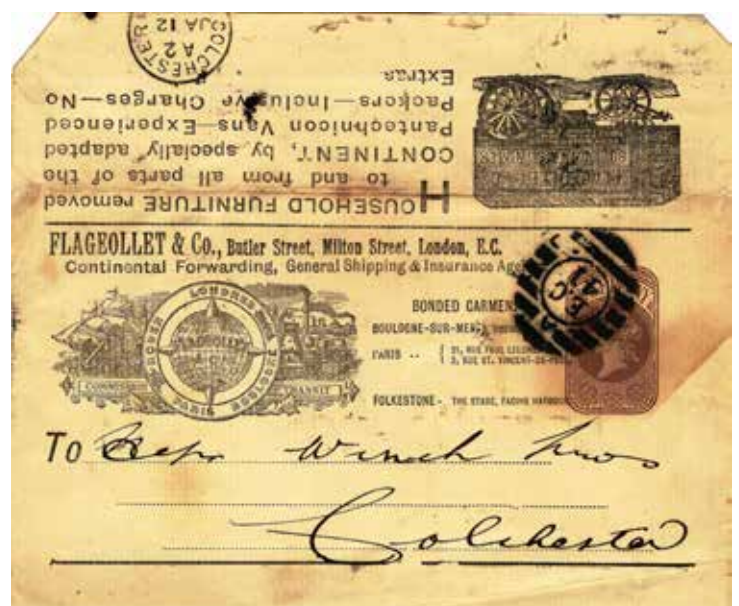 COLCHESTER
A2
JA 12
HOUSEHOLD FURNITURE removed
to and from all parts of the
CONTINENT, by specially adapted
Pantechnicon Vans—Experienced
Packers—Inclusive Charges—No
Extras.
FLAGEOLLET & Co., Butler Street, Milton Street, London, E.C.
Continental Forwarding, General Shipping & Insurance Age
LONDRES
FLAGEOLLET
& Co.
PARIS
BOULOGNE
TRANSIT
BONDED CARMEN
BOULOGNE-SUR-MER
PARIS ..
FOLKESTONE - THE STADE, FACING HARBOUR
EC
41
To Winch Bros
Colchester